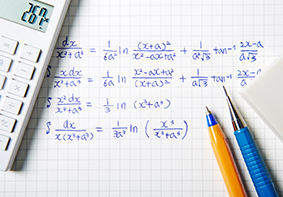 dx / x³+a³ = 1/6a² ln (x+a)² / x²-ax+a² + 1/a²√3 tan⁻¹ 2x-a / a√3
∫ xdx / x³+a³ = 1/6a ln x²-ax+a² / (x+a)² + 1/a√3 tan⁻¹ 2x- / a
∫ x²dx / x³+a³ = 1/3 ln (x³+a³)
∫ dx / x(x³+a³) = 1/3a³ ln ( x³ / x³+a³ )